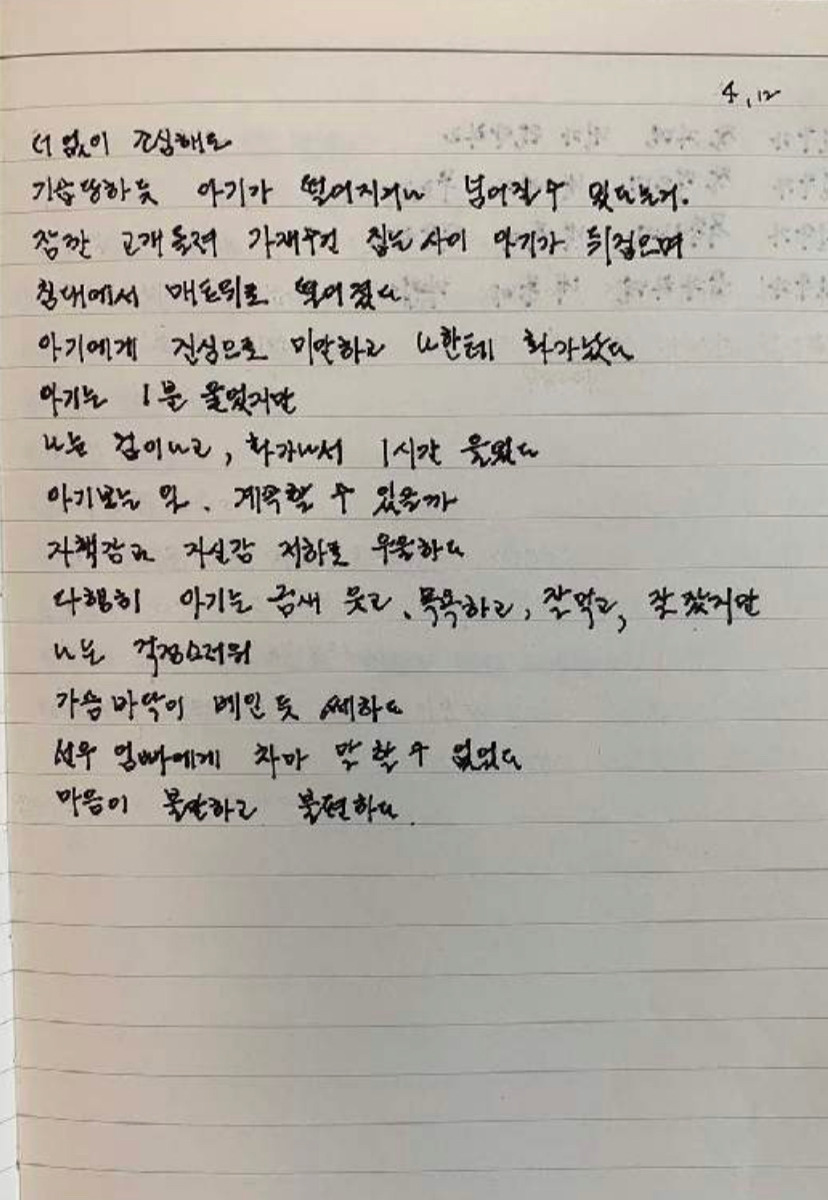 4.12
더없이 조심해도
기습당하듯 아기가 떨어지거나 넘어질 수 있다는거.
잠깐 고개돌려 가재수건 집는 사이 아기가 뒤집으며
침대에서 매트위로 떨어졌다
아기에게 진심으로 미안하고 나한테 화가났다
아기는 1분 울었지만
나는 겁이나고, 화가나서 1시간 울었다
아기보는 일. 계속할 수 있을까
자책감과 자신감 저하로 우울하다
다행히 아기는 금새 웃고, 목욕하고, 잘먹고, 잘 잤지만
나는 걱정스러워
가슴 바닥이 베인 듯 쎄하다
선우 엄빠에게 차마 말 할 수 없었다
마음이 불안하고 불편하다.